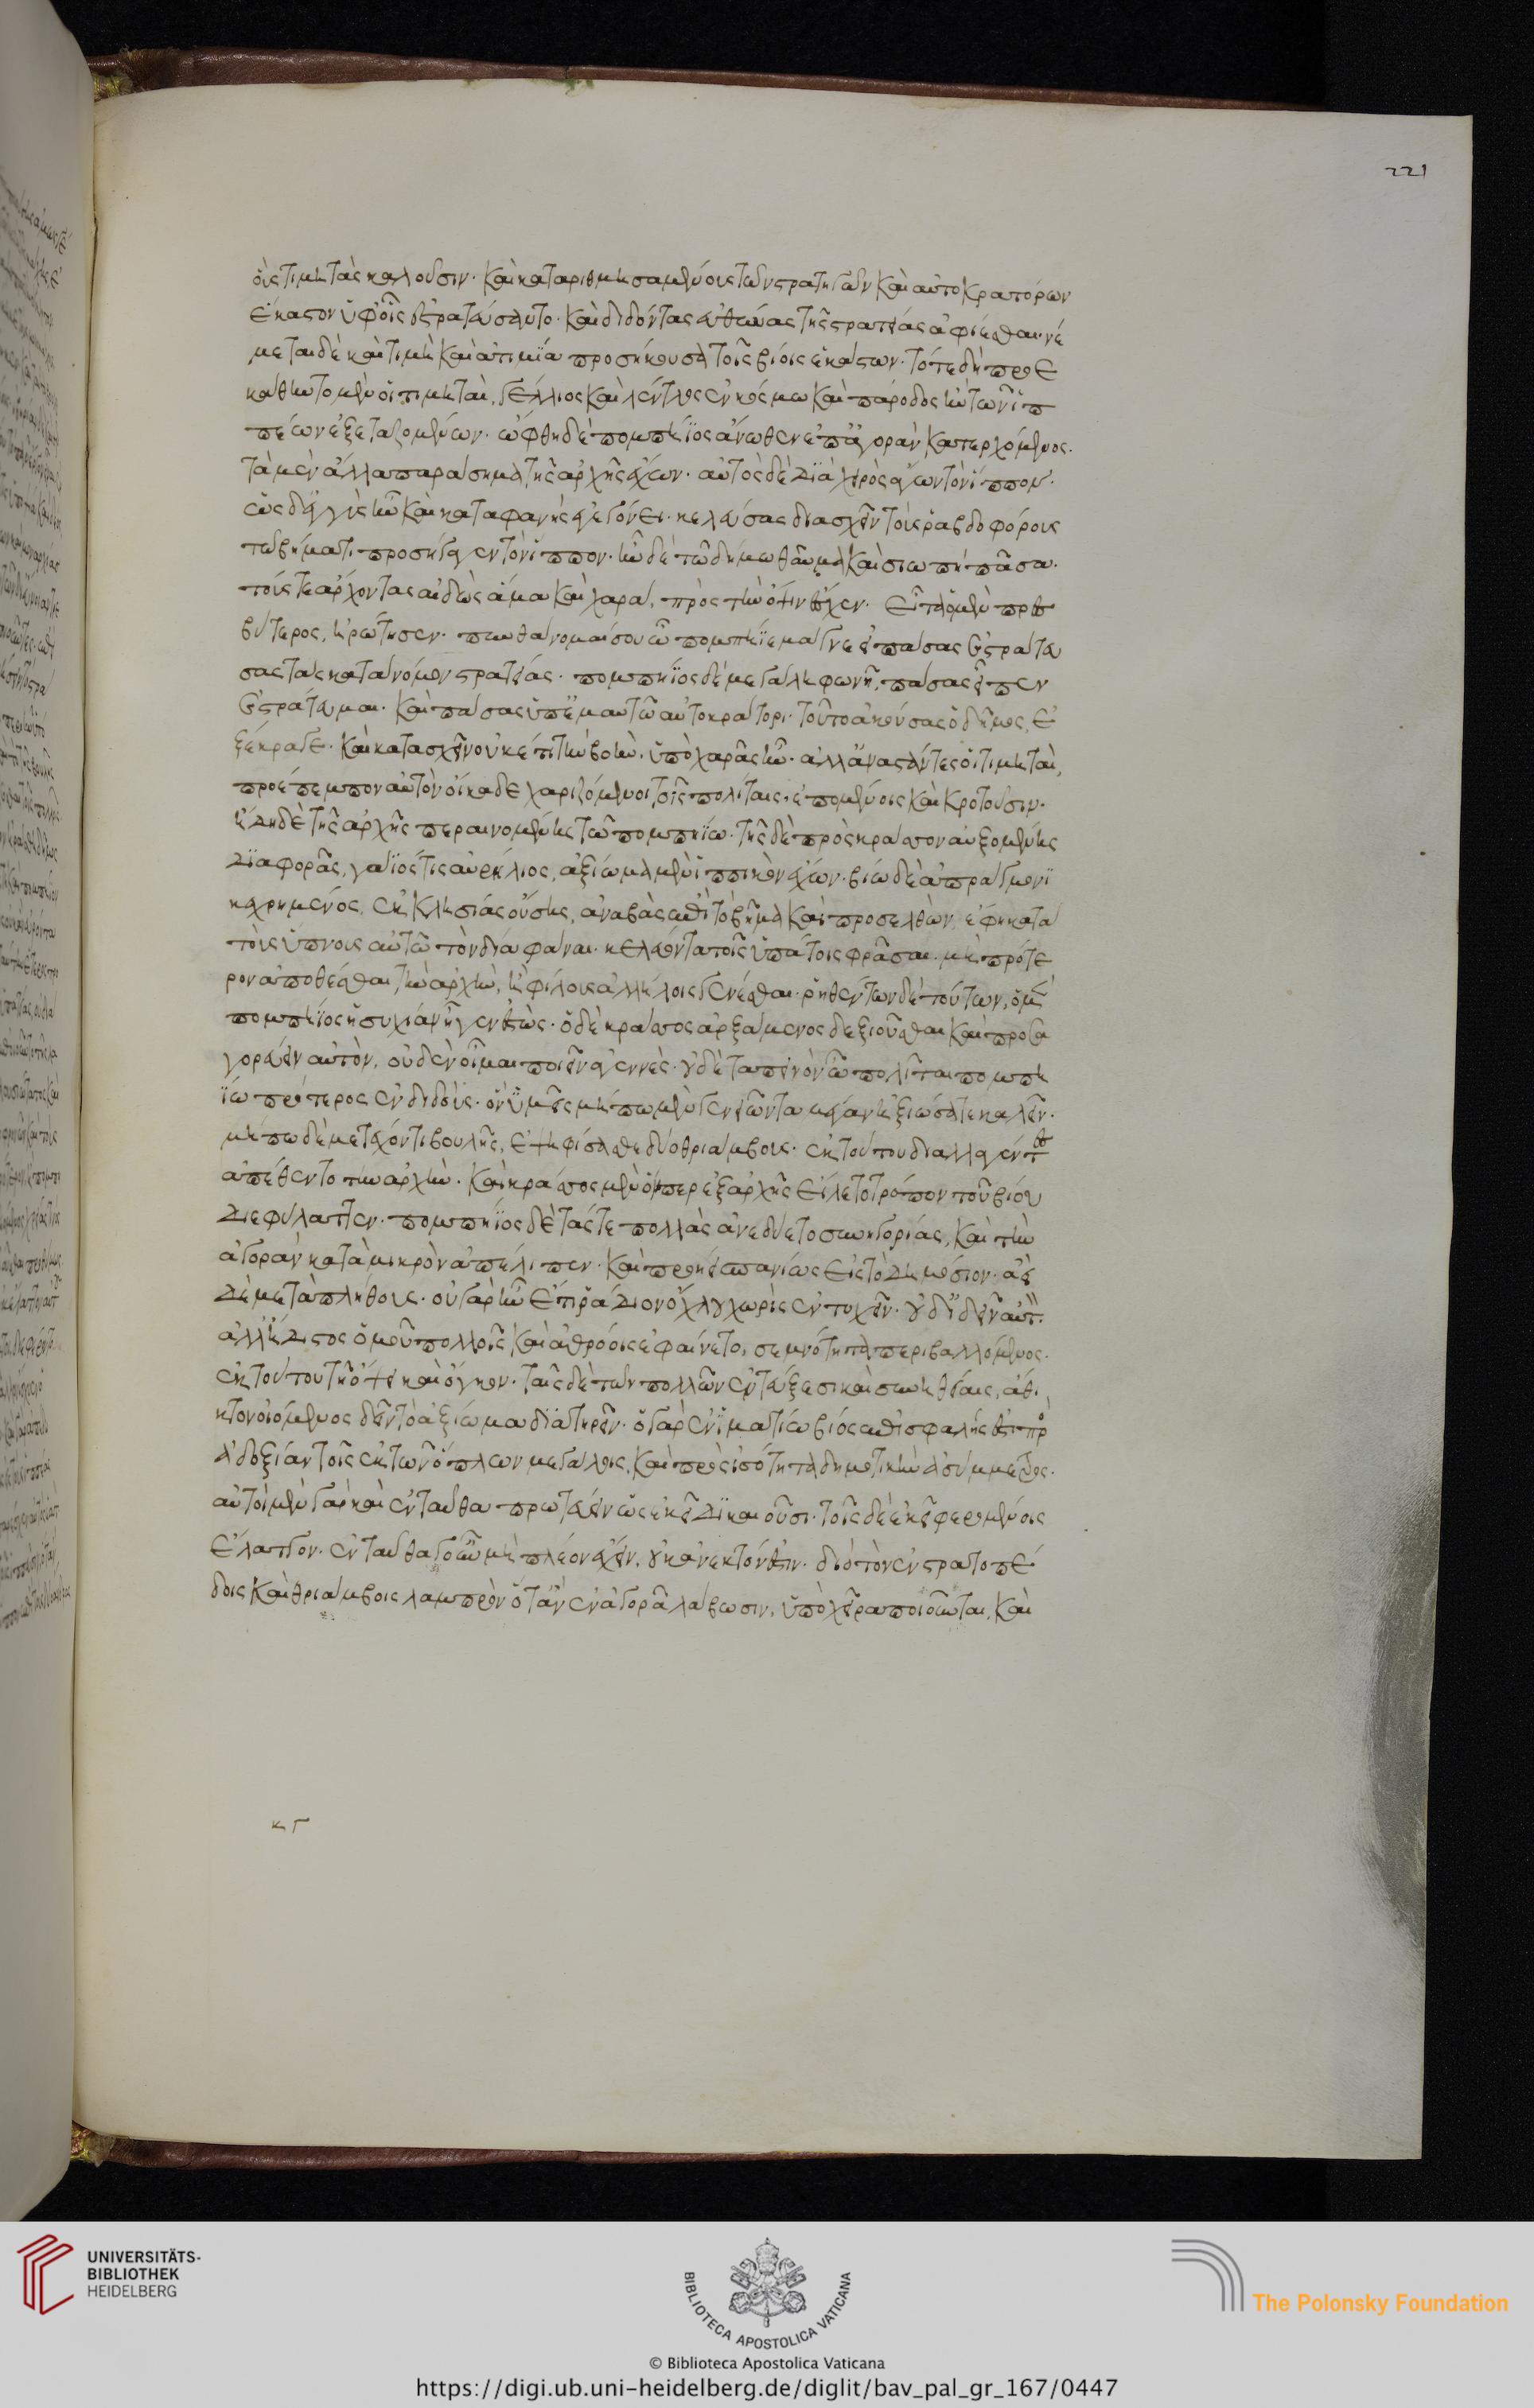 221
οὓς τιμητὰς καλοῦσιν. καὶ καταριθμησαμένους τῶν στρατηγῶν καὶ αὐτοκρατόρων
ἕκαστον ὑφ' οἷς ἐστρατεύσαντο. καὶ διδόντας εὐθύνας τῆς στρατείας ἀφίεσθαι. νέ
μεται δὲ καὶ τιμὴ καὶ ἀτιμία προσήκουσα τοῖς βίοις ἑκάστων. τότε δὴ προε
κάθηντο μὲν οἱ τιμηταὶ, γέλλιος καὶ λέντλος ἐν κόσμω καὶ πάροδος ἦν τῶν ἱπ
πέων ἐξεταζομένων. ὤφθη δὲ πομπήϊος ἄνωθεν ἐπ' ἀγορὰν κατερχόμενος.
τὰ μὲν ἄλλα παράσημα τῆς ἀρχῆς ἔχων. αὐτὸς δὲ διὰ χειρὸς ἄγων τὸν ἵππον.
ὡς δ' ἐγγὺς ἦν καὶ καταφανὴς ἐγεγόνει. κελεύσας διασχεῖν τοὺς ῥαβδοφόρους
τῶ βήματι προσήγαγεν τὸν ἵππον. ἦν δὲ τῶ δήμω θαῦμα καὶ σιωπὴ πᾶσα.
τούς τε ἄρχοντας αἰδὼς ἅμα καὶ χαρὰ, πρὸς τὴν ὄψιν ἔσχεν. εἶτα ὁ μὲν πρεσ
βύτερος, ἠρώτησεν. πυνθάνομαί σου ὦ πομπήϊε μάγνε εἰ πάσας ἐστράτευ
σας τὰς κατὰ νόμον στρατείας. πομπήϊος δὲ μεγάλη φωνῆ, πάσας εἶπεν
ἐστράτευμαι. καὶ πάσας ὑπ' ἐμαυτῶ αὐτοκράτορι. τοῦτο ἀκούσας ὁ δῆμος, ἐ
ξέκραγε. καὶ κατασχεῖν οὐκέτι τὴν βοὴν, ὑπὸ χαρᾶς ἦν. ἀλλ' ἀναστάντες οἱ τιμηταὶ,
προέπεμπον αὐτὸν οἴκαδε χαριζόμενοι τοῖς πολίταις, ἑπομένοις καὶ κροτοῦσιν.
ἤδη δὲ τῆς ἀρχῆς περαινομένης τῶ πομπηΐω. τῆς δὲ πρὸς κράσσον αὐξομένης
διαφορᾶς, γάϊός τις αὐρήλιος, ἀξίωμα μὲν ἱππικὸν ἔχων. βίω δὲ ἀπράγμονι
κεχρημένος, ἐκκλησίας οὔσης, ἀναβὰς ἐπὶ τὸ βῆμα καὶ προσελθὼν, ἔφη κατὰ
τοὺς ὕπνους αὐτῶ τὸν δία φάναι. κελεύοντα τοῖς ὑπάτοις φράσαι. μὴ πρότε
ρον ἀποθέσθαι τὴν ἀρχὴν, ἢ φίλους ἀλλήλοις γενέσθαι. ῥηθέντων δὲ τούτων, ὁ μὲν
πομπήϊος ἡσυχίαν ἦγεν ἑστὼς. ὁ δὲ κράσσος ἀρξάμενος δεξιοῦσθαι καὶ προσα
γορεύειν αὐτὸν, οὐδὲν οἶμαι ποιεῖν ἀγεννὲς. οὐδὲ ταπεινὸν ὦ πολῖται πομπη
ΐω πρότερος ἐνδιδοὺς. ὃν ὑμεῖς μήπω μὲν γενειῶντα μέγαν ἠξιώσατε καλεῖν.
μήπω δὲ μετέχοντι βουλῆς, ἐψηφίσασθε δύο θριάμβους. ἐκ τούτου διαλλαγέντες
ἀπέθεντο τὴν ἀρχὴν. καὶ κράσσος μὲν ὅνπερ ἐξαρχῆς εἵλετο τρόπον τοῦ βίου
διεφύλαττεν. πομπήϊος δὲ τάς τε πολλὰς ἀνεδύετο συνηγορίας, καὶ τὴν
ἀγορὰν κατὰ μικρὸν ἀπέλιπεν. καὶ προήει σπανίως εἰς τὸ δημόσιον. ἀεὶ
δὲ μετὰ πλήθους. οὐ γὰρ ἦν ἔτι ῥάδιον ὄχλου χωρὶς ἐντυχεῖν. οὐδ' ἰδεῖν αὐτὸν.
ἀλλ' ἥδιστος ὁμοῦ πολλοῖς καὶ ἀθρόοις ἐφαίνετο, σεμνότητα περιβαλλόμενος.
ἐκ τούτου τῆ ὄψει καὶ ὄγκον. ταῖς δὲ τῶν πολλῶν ἐντεύξεσι καὶ συνηθείαις, ἄθι
κτον οἰόμενος δεῖν τὸ ἀξίωμα διατηρεῖν. ὁ γὰρ ἐν ἱματίω βίος ἐπισφαλής ἐστι πρὸς
ἀδοξίαν τοῖς ἐκ τῶν ὅπλων μεγάλοις, καὶ πρὸς ἰσότητα δημοτικὴν ἀσύμμετρος.
αὐτοὶ μὲν γὰρ καὶ ἐνταῦθα πρωτεύειν ὡς ἐκεῖ δικαιοῦσι. τοῖς δὲ ἐκεῖ φερομένοις
ἔλαττον. ἐνταῦθα γοῦν μὴ πλέον ἔχειν, οὐκ ἀνεκτόν ἐστιν. διὸ τὸν ἐν στρατοπέ
δοις καὶ θριάμβοις λαμπρὸν ὅταν ἐν ἀγορᾶ λάβωσιν, ὑπὸ χεῖρα ποιοῦνται, καὶ
κγ
UNIVERSITÄTS-
BIBLIOTHEK
HEIDELBERG
BIBLIOTECA APOSTOLICA VATICANA
The Polonsky Foundation
© Biblioteca Apostolica Vaticana
https://digi.ub.uni-heidelberg.de/diglit/bav_pal_gr_167/0447